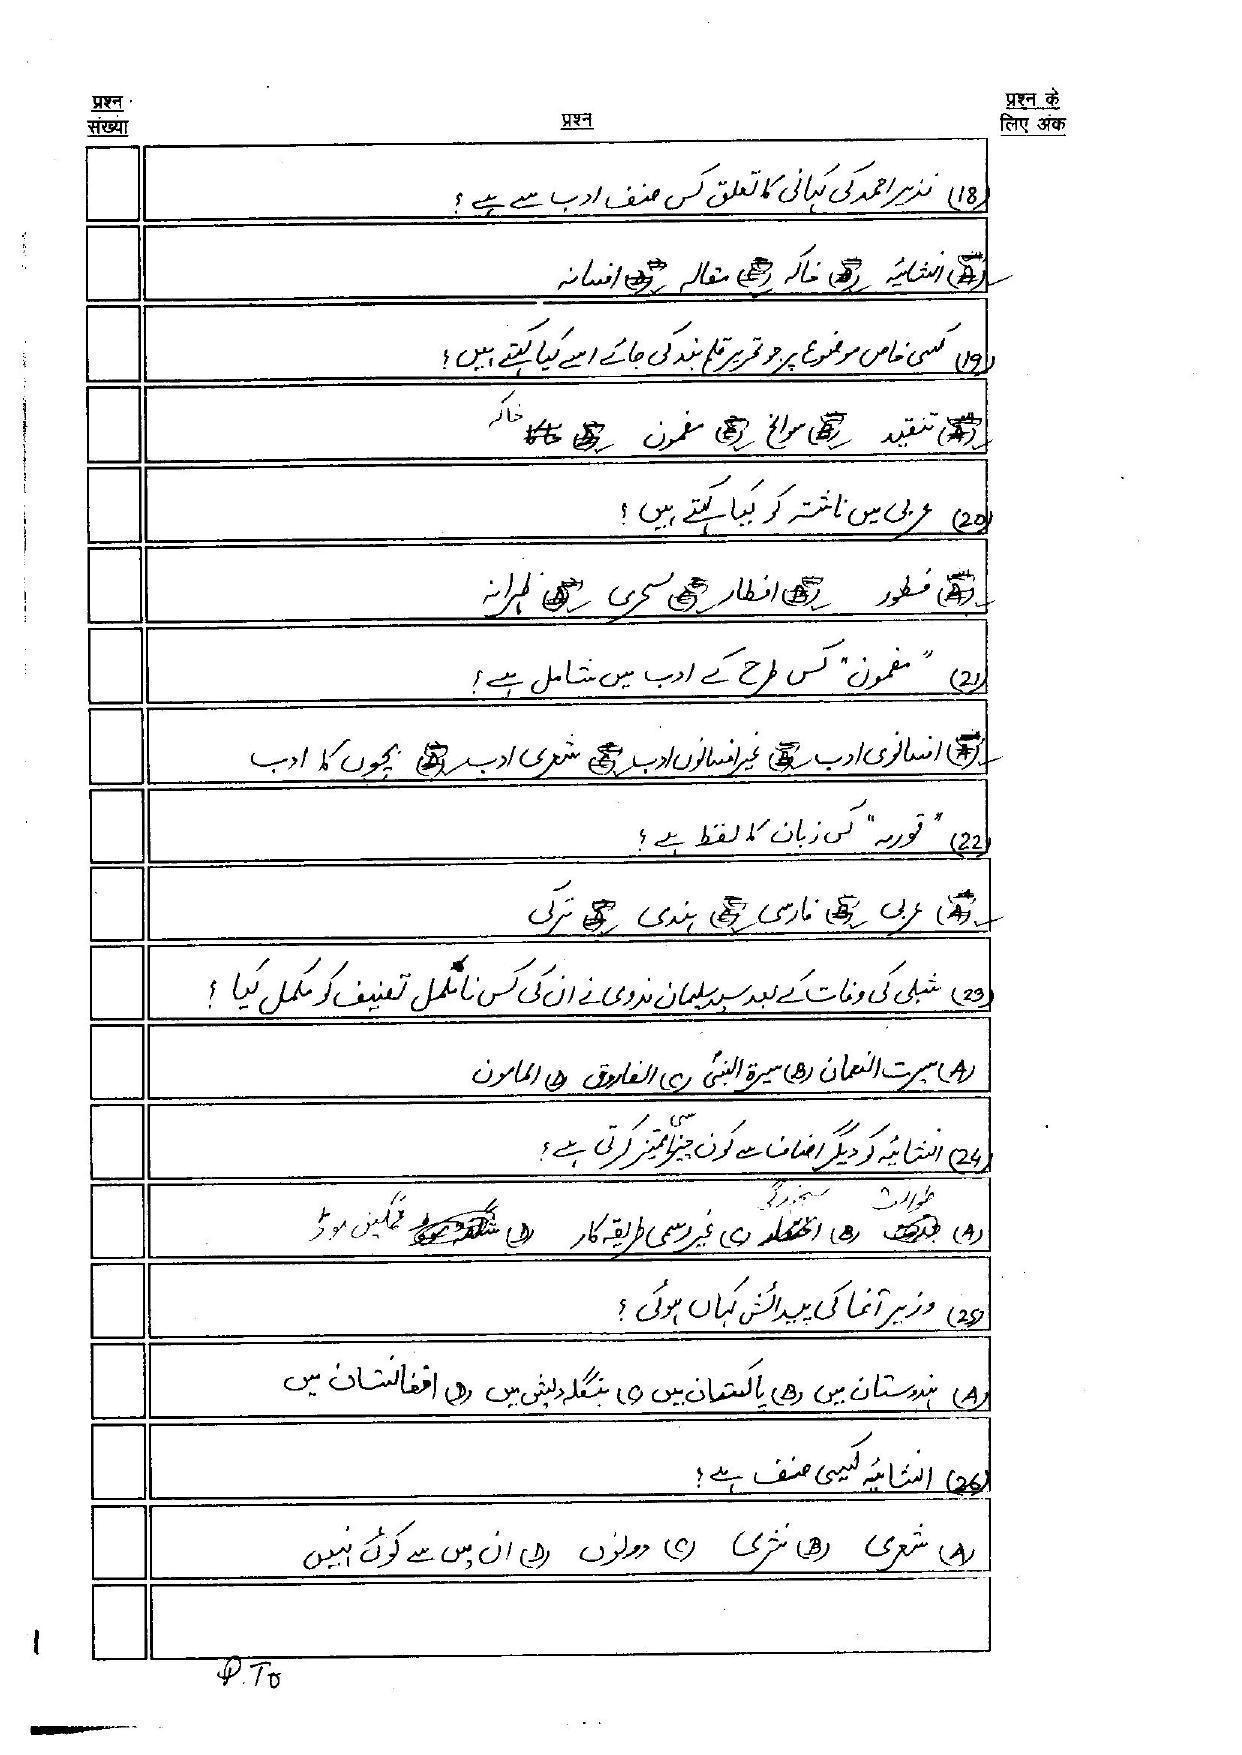 प्रश्न संख्या
प्रश्न
प्रश्न के लिए अंक
(18) نذیر احمد کی کہانی کا تعلق کس صنف ادب سے ہے؟
(A) انشائیہ (B) خاکہ (C) مقالہ (D) افسانہ
(19) کسی خاص موضوع پر جو تحریر قلم بند کی جائے اسے کیا کہتے ہیں؟
(A) تنقید (B) سوانح (C) مضمون (D) خاکہ
(20) عربی میں ناشتہ کو کیا کہتے ہیں؟
(A) فطور (B) افطار (C) سحری (D) ظہرانہ
(21) "مضمون" کس طرح کے ادب میں شامل ہے؟
(A) افسانوی ادب (B) غیر افسانوں ادب (C) شعری ادب (D) بچوں کا ادب
(22) "قورمہ" کس زبان کا لفظ ہے؟
(A) عربی (B) فارسی (C) ہندی (D) ترکی
(23) شبلی کی وفات کے بعد سید سلیمان ندوی نے ان کی کس نامکمل تصنیف کو مکمل کیا؟
(A) سیرت النعمان (B) سیرۃ النبیؐ (C) الفاروق (D) المامون
(24) انشائیہ کو دیگر اصناف سے کون سی چیز ممیز کرتی ہے؟
(A) طوالت (B) سنجیدگی (C) غیر رسمی طریقہ کار (D) غمگین موڈ
(25) وزیر آغا کی پیدائش کہاں ہوئی؟
(A) ہندوستان میں (B) پاکستان میں (C) بنگلہ دیش میں (D) افغانستان میں
(26) انشائیہ کیسی صنف ہے؟
(A) شعری (B) نثری (C) دونوں (D) ان میں سے کوئی نہیں
P.To